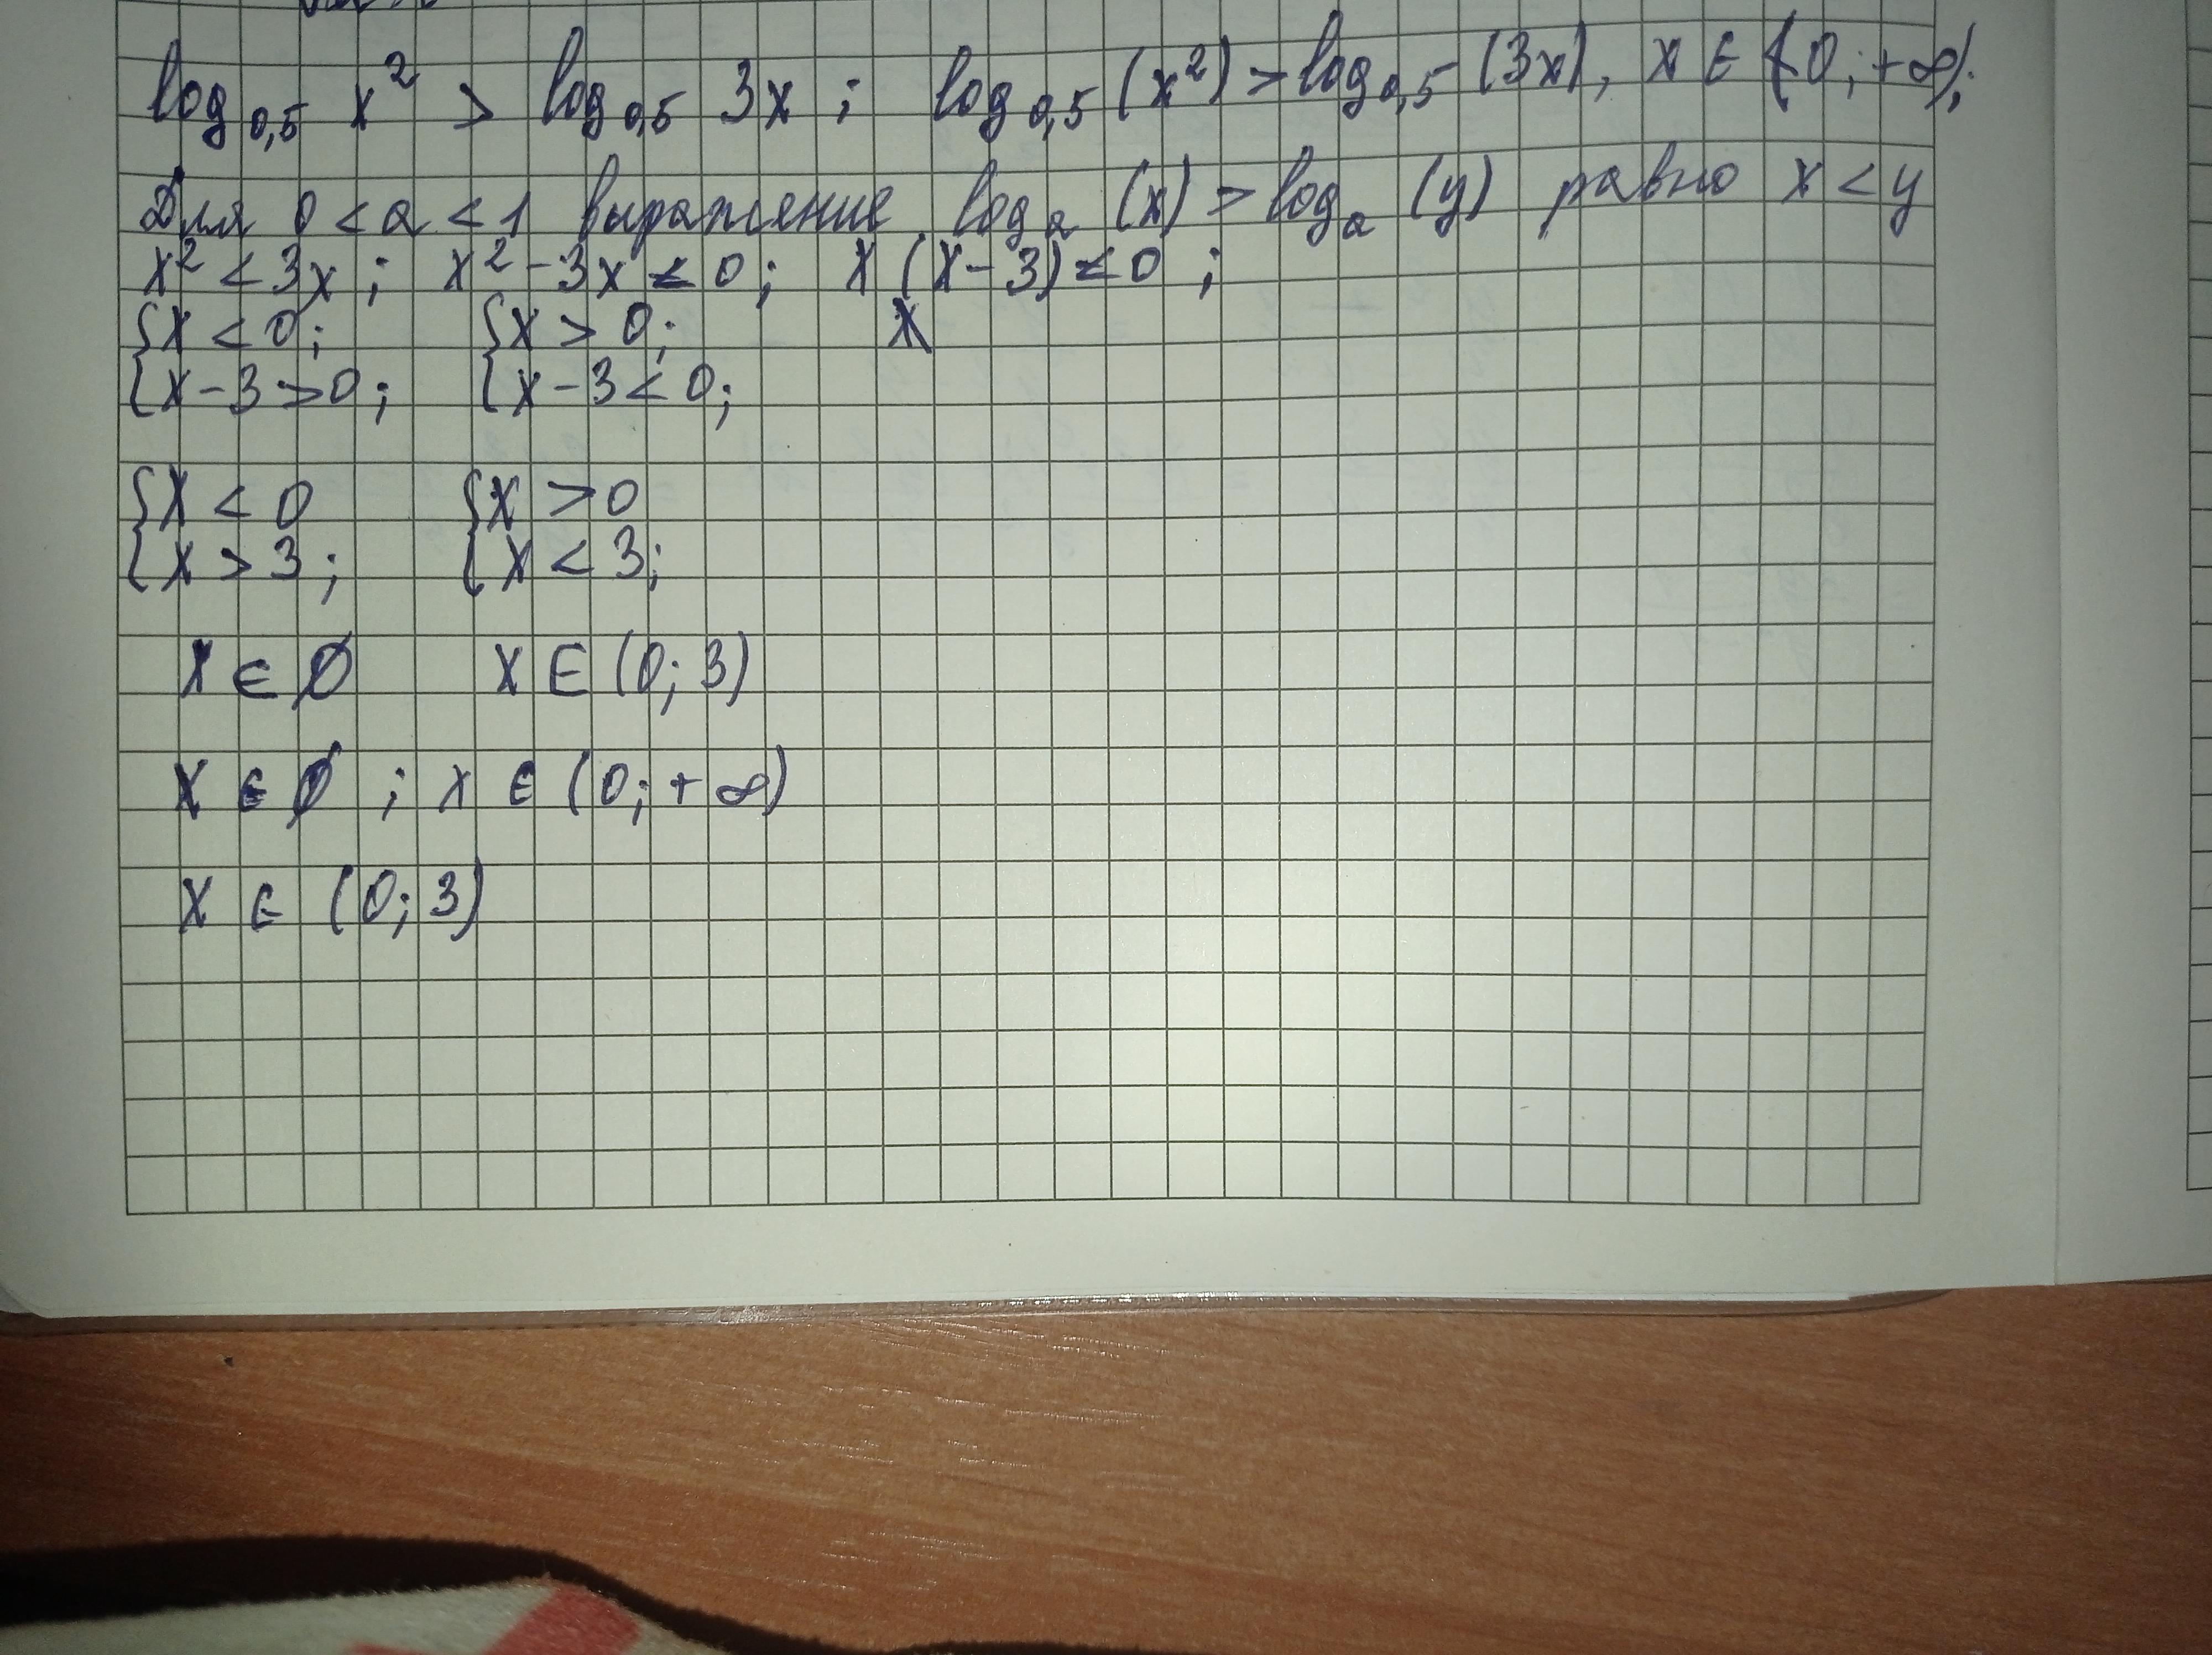 log₀,₅ x² > log₀,₅ 3x ; log₀,₅ (x²) > log₀,₅ (3x), x ∈ (0; +∞);
Для 0 < a < 1 выражение logₐ (x) > logₐ (y) равно x < y
x² < 3x ; x² - 3x < 0 ; x (x - 3) < 0 ;
{x < 0; {x > 0; x
{x - 3 > 0; {x - 3 < 0;
{x < 0 {x > 0
{x > 3 ; {x < 3;
x ∈ ∅ x ∈ (0; 3)
x ∈ ∅ ; x ∈ (0; +∞)
x ∈ (0; 3)